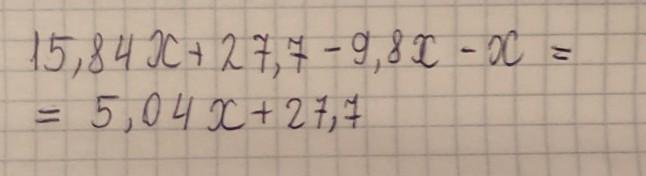 15,84x + 27,7 - 9,8x - x =
= 5,04x + 27,7